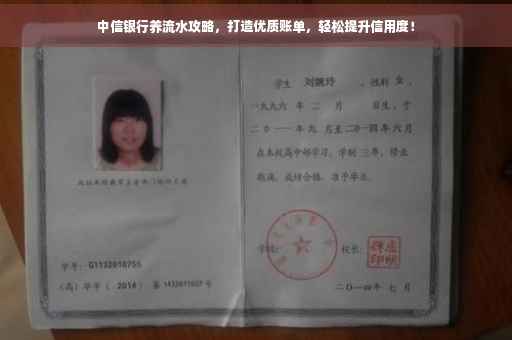 中信银行养流水攻略，打造优质账单，轻松提升信用度！
学生 刘婉玲 ，性别 女 ，
一九九六 年 二 月 日生，于
二〇一一年九 月至二〇一四年 六 月
在本校高中部学习，学制 三年，修业
期满，成绩合格，准予毕业。
学校： 校长：
学号：G1132010755
（高）毕字（ 2014 ）第 1432011027 号
二〇一四年 七 月